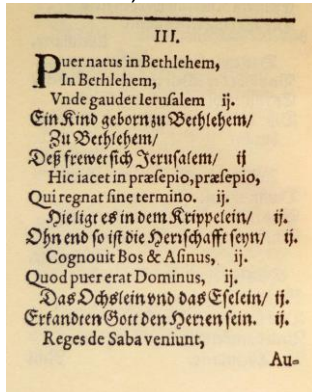 III.
Puer natus in Bethlehem,
In Bethlehem,
Vnde gaudet Ierusalem ij.
Ein Kind geborn zu Bethlehem/
Zu Bethlehem/
Deß frewet sich Jerusalem/ ij
Hic iacet in præsepio, præsepio,
Qui regnat sine termino. ij.
Hie ligt es in dem Krippelein/ ij.
Ohn end so ist die Herrschafft seyn/ ij.
Cognouit Bos & Asinus, ij.
Quod puer erat Dominus, ij.
Das Ochslein vnd das Eselein/ ij.
Erkandten Gott den Herren sein. ij.
Reges de Saba veniunt,
Au=